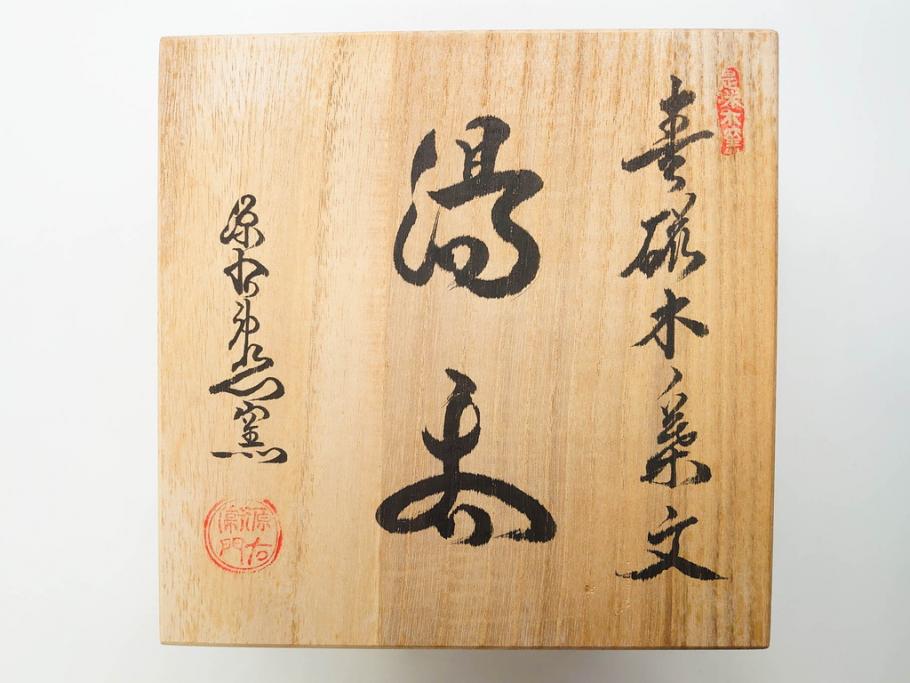 青磁木葉文
湯呑
源右衛門窯
源右
衛門